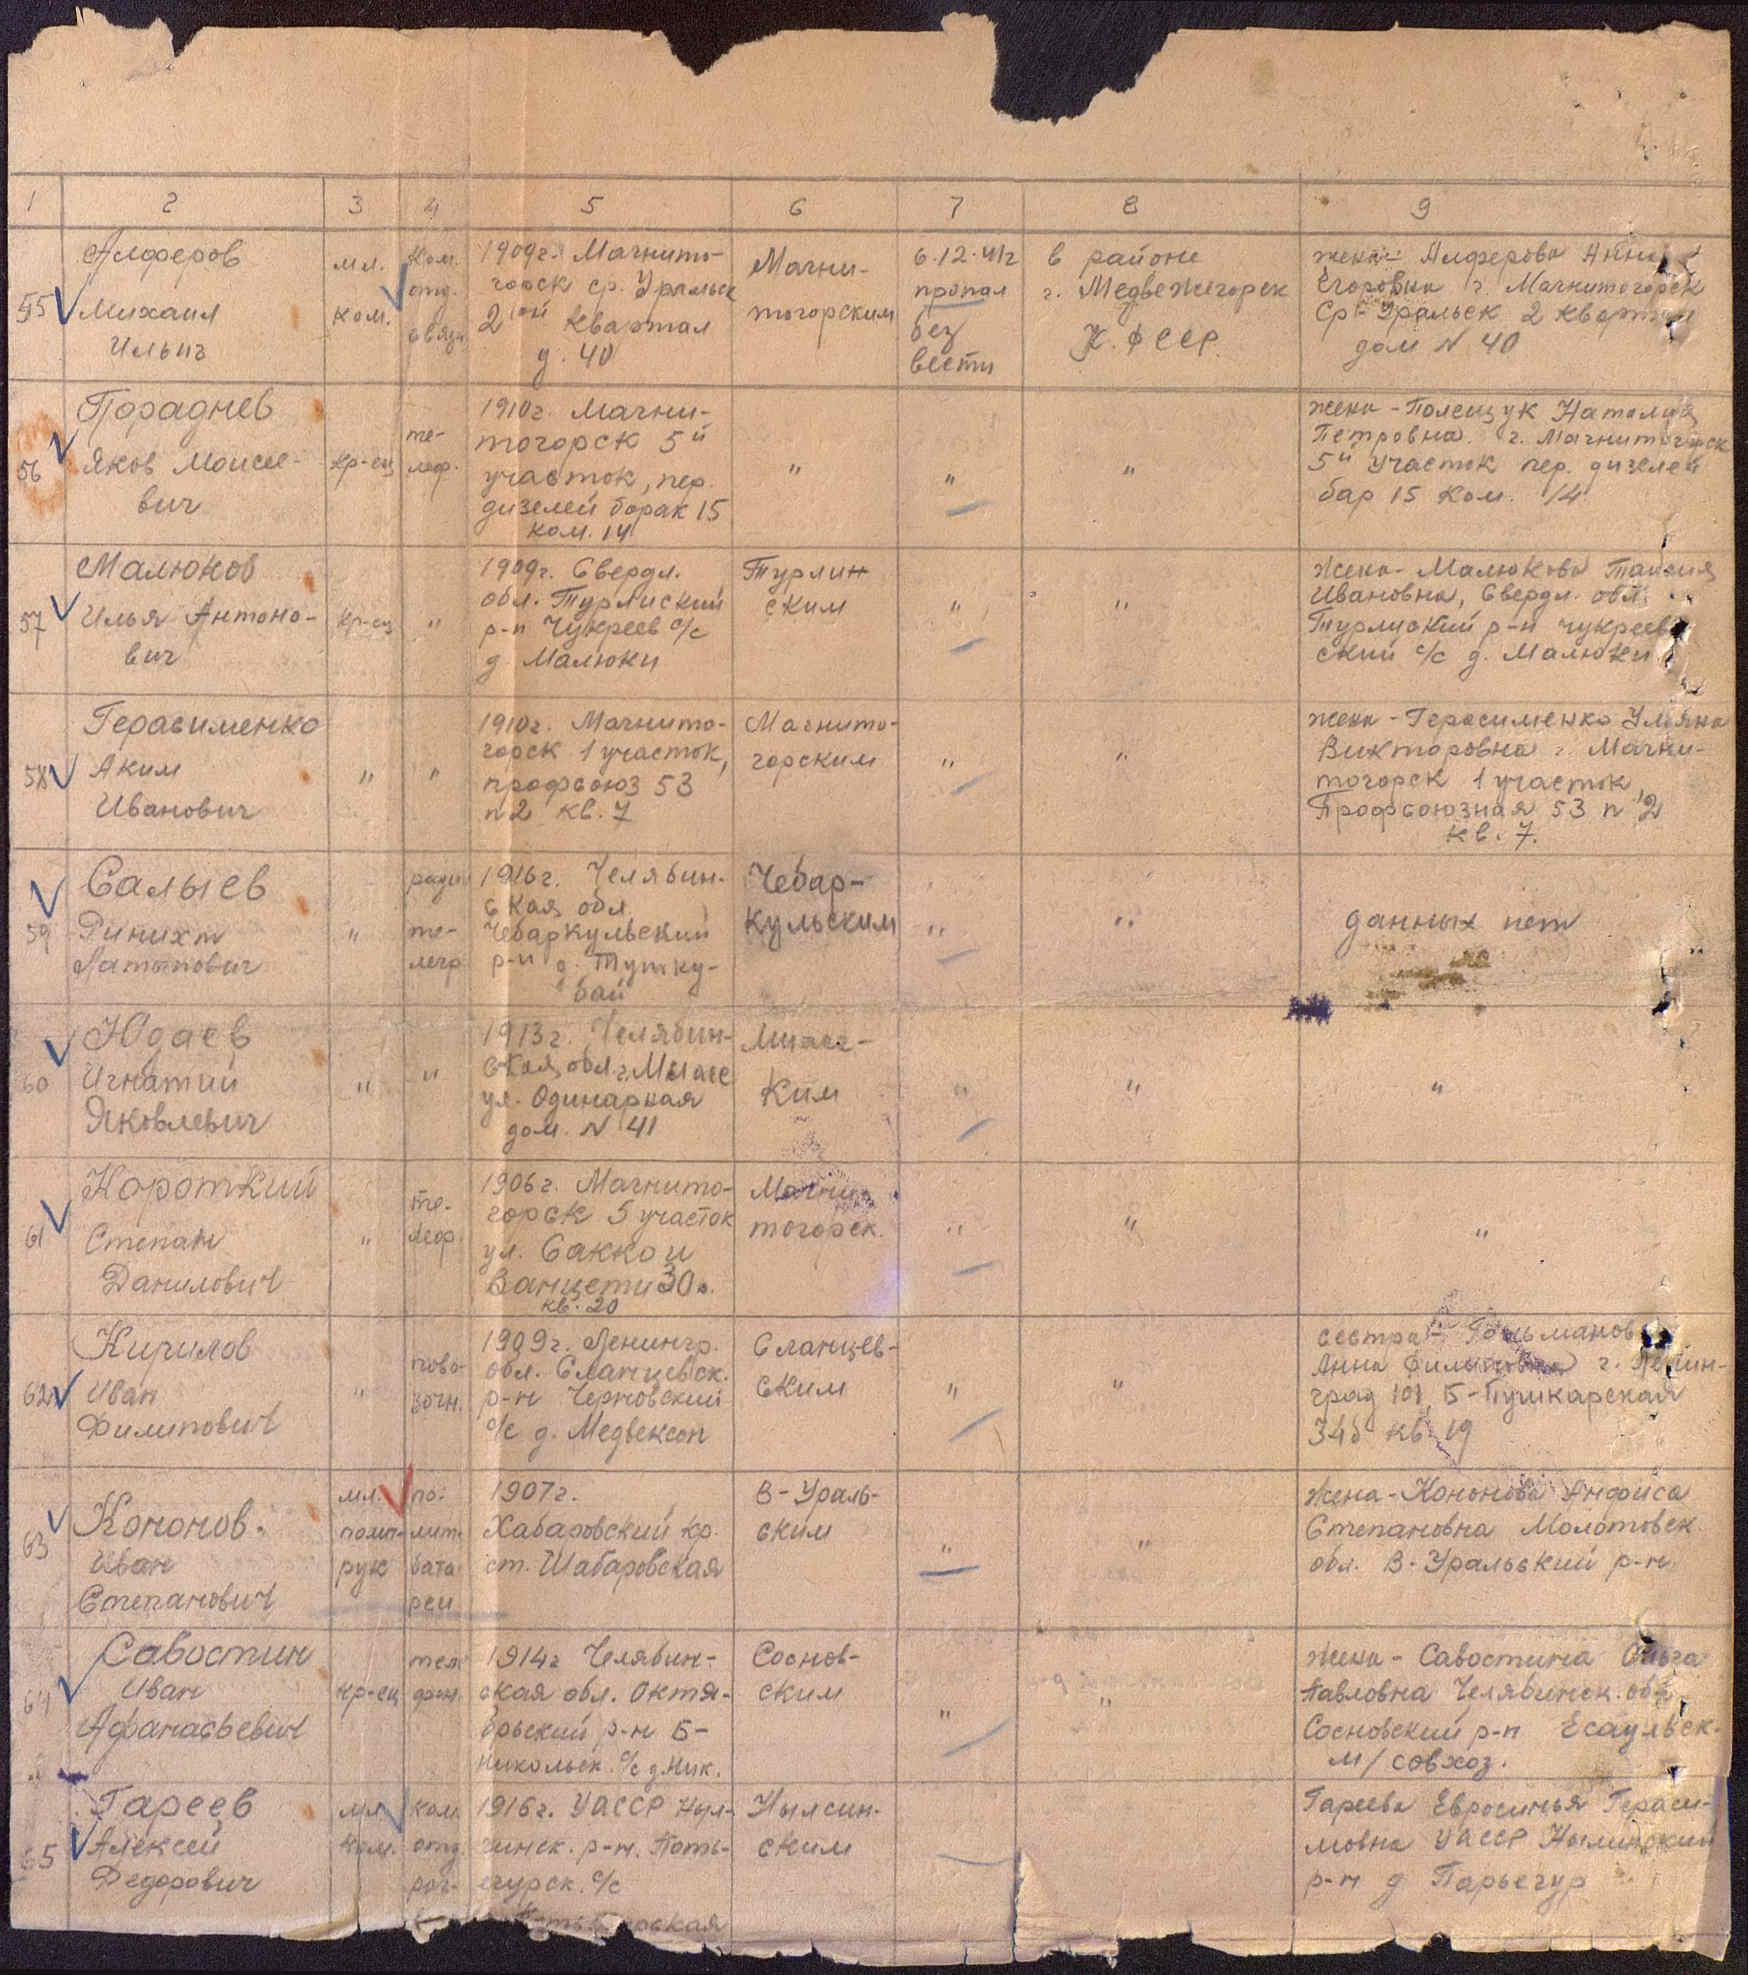 1 2 3 4 5 6 7 8 9
55
Алферов
Михаил
Ильич
мл.
ком.
ком.
отд.
связи
1909г. Магнито-
горск ср. Уральск
2ой квартал
д. 40
Магни-
тогорским
6.12.41г
пропал
без
вести
в районе
г. Медвежегорск
К.ФССР.
жена - Алферова Анна
Егоровна г. Магнитогорск
Ср-Уральск 2 квартал
дом N 40
56
Пораднев
Яков Моисее-
вич
кр-ец
те-
леф.
1910г. Магни-
тогорск 5й
участок, пер.
дизелей барак 15
ком. 14
"
"
"
жена - Полещук Наталия
Петровна. г. Магнитогорск
5й участок пер. дизелей
бар 15 ком. 14
57
Малюков
Илья Антоно-
вич
кр-ец
"
1909г. Свердл.
обл. Турлиский
р-н Чукреев с/с
д. Малюки
Турлин
ским
"
"
Жена - Малюкова Таисия
Ивановна, Свердл. обл.
Турлиский р-н чукреев
ский с/с д. Малюки
58
Герасименко
Аким
Иванович
"
"
1910г. Магнито-
горск 1 участок,
профсоюз 53
п 2 кв. 7
Магнито-
горским
"
"
жена - Герасименко Ульяна
Викторовна г. Магни-
тогорск 1 участок
Профсоюзная 53 п 2
кв. 7.
59
Салыев
Ринихт
Латыпович
"
ради
те-
легр
1916г. Челябин-
ская обл.
Чебаркульский
р-н д. Тутку-
бай
Чебар-
кульским
"
"
данных нет
60
Юдаев
Игнатий
Яковлевич
"
"
1913г. Челябин-
ская обл. г. Миасс
ул. Одинарная
дом. N 41
Миасс-
ким
"
"
"
61
Короткий
Степан
Данилович
"
те-
леф.
1906г. Магнито-
горск 5 участок
ул. Сакко и
Ванцети 30
кв. 20
Магни-
тогорск.
"
"
"
62
Кирилов
Иван
Филипович
"
пово-
зочн.
1909г. Ленингр.
обл. Сланцевск.
р-н Черновский
с/с д. Медвексон
Сланцев-
ским
"
"
сестра - Гольманов
Анна Филиповна г. Ленин-
град 101, Б-Пушкарская
34б кв. 19
63
Кононов.
Иван
Степанович
мл.
полит-
рук
по-
лит-
бата
реи
1907г.
Хабаровский кр.
ст. Шабаровская
В-Ураль-
ским
"
"
Жена - Кононова Анфиса
Степановна Молотовск.
обл. В-Уральский р-н
64
Савостин
Иван
Афанасьевич
кр-ец
теле
фон.
1914г Челябин-
ская обл. Октя-
брьский р-н Б-
Никольск. с/с д. Ник.
Соснов-
ским
"
"
Жена - Савостина Ольга
Павловна Челябинск. обл
Сосновский р-н Есаульск.
м/совхоз.
65
Гареев
Алексей
Федорович
мл
ком.
ком.
отд.
1916г. УАССР Ныл-
гинск. р-н. Поть-
егурск. с/с
Нылсин-
ским
Гареева Евросинья Гераси-
мовна УАССР Нылинский
р-н д Парьегур